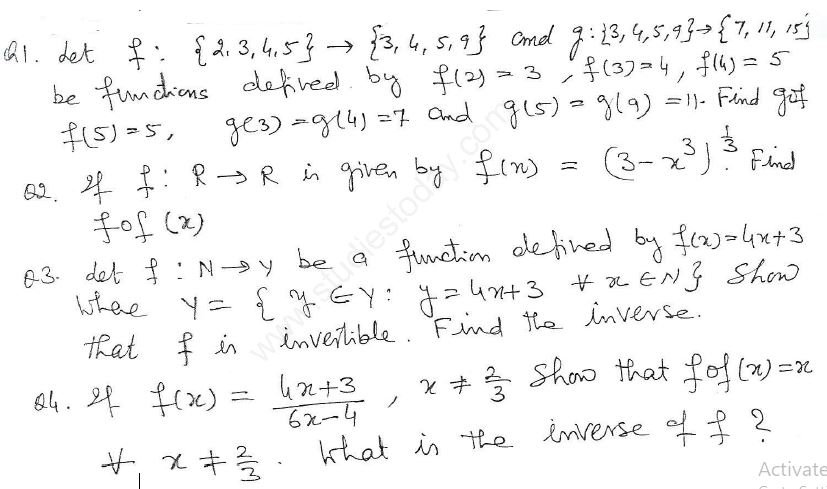 Q1. Let f : {2,3,4,5} → {3,4,5,9} and g : {3,4,5,9} → {7,11,15}
be functions defined by f(2) = 3, f(3) = 4, f(4) = 5
f(5) = 5, g(3) = g(4) = 7 and g(5) = g(9) = 11. Find gof
Q2. If f : R → R is given by f(x) = (3 - x³)^(1/3). Find
fof(x)
Q3. Let f : N → Y be a function defined by f(x) = 4x+3
where Y = { y ∈ Y : y = 4x+3 ∀ x ∈ N} Show
that f is invertible. Find the inverse.
Q4. If f(x) = (4x+3)/(6x-4), x ≠ 2/3 Show that fof(x) = x
∀ x ≠ 2/3. What is the inverse of f ?
Activate